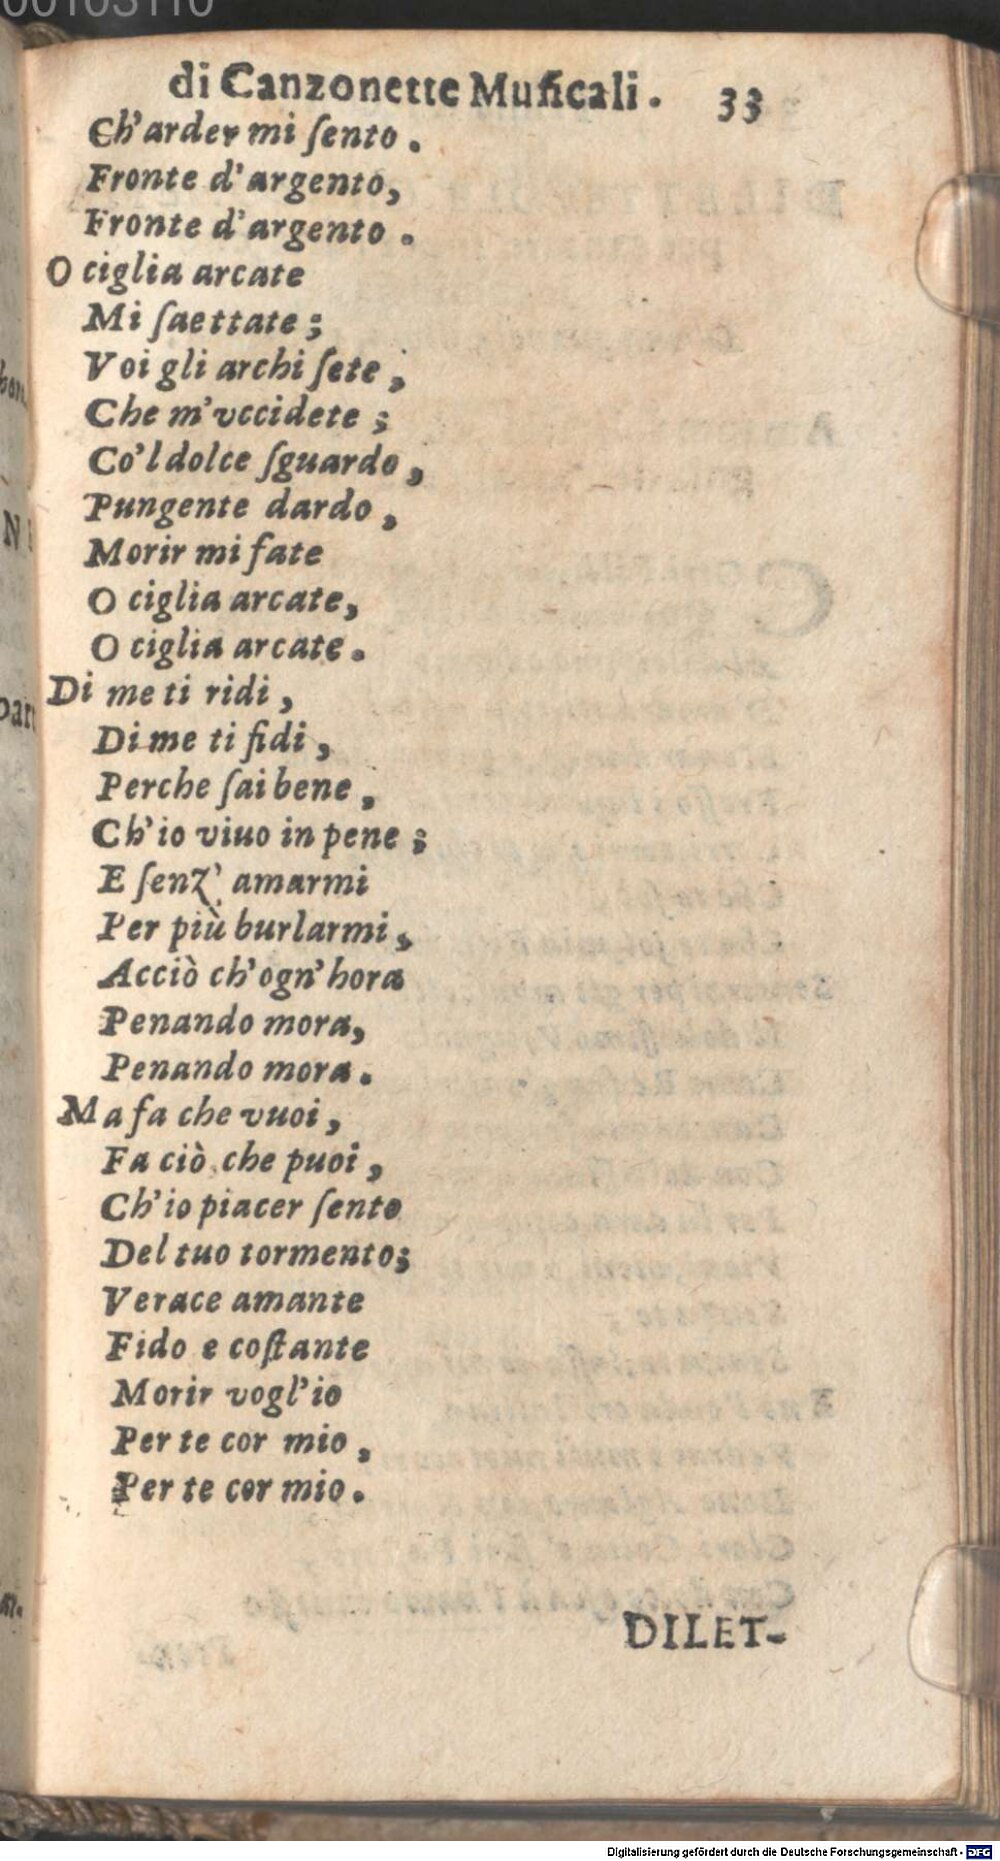 00103110
di Canzonette Muſicali. 33
Ch'arder mi ſento.
Fronte d'argento,
Fronte d'argento.
O ciglia arcate
Mi ſaettate;
Voi gli archi ſete,
Che m'vccidete;
Co'l dolce ſguardo,
Pungente dardo,
Morir mi fate
O ciglia arcate,
O ciglia arcate.
Di me ti ridi,
Di me ti fidi,
Perche ſai bene,
Ch'io viuo in pene;
E ſenz' amarmi
Per più burlarmi,
Acciò ch'ogn'hora
Penando mora,
Penando mora.
Ma fa che vuoi,
Fa ciò che puoi,
Ch'io piacer ſento
Del tuo tormento;
Verace amante
Fido e coſtante
Morir vogl'io
Per te cor mio,
Per te cor mio.
DILET-
Digitalisierung gefördert durch die Deutsche Forschungsgemeinschaft - DFG